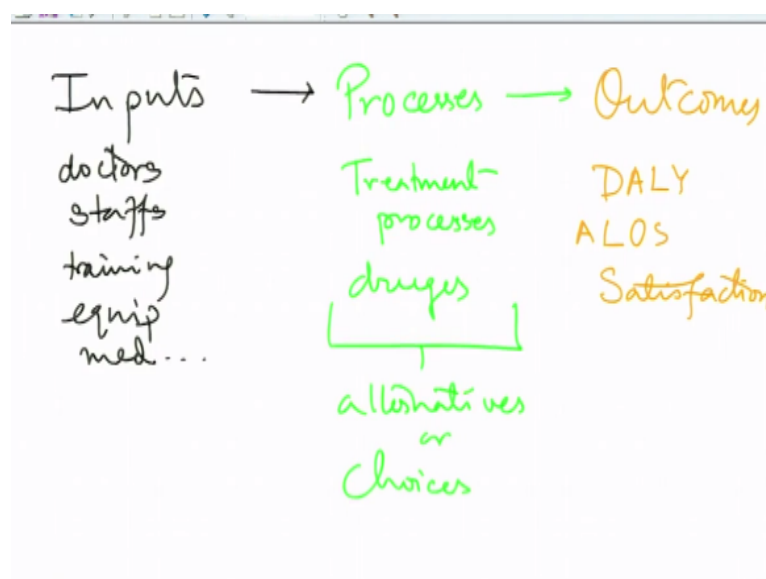 Inputs → Processes → Outcomes
doctors
staffs
training
equip
med...
Treatment
processes
druges
alternatives
or
Choices
DALY
ALOS
Satisfaction